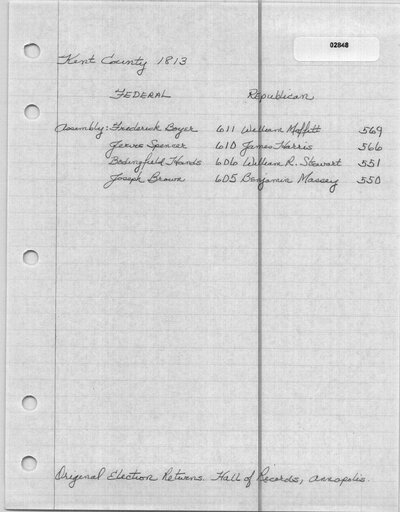 02848
Kent County 1813
FEDERAL Republican
Assembly: Frederick Boyer 611 William Moffitt 569
Jervis Spencer 610 James Harris 566
Bedingfield Hands 606 William R. Stewart 551
Joseph Brown 605 Benjamin Massey 550
Original Election Returns. Hall of Records, Annapolis.